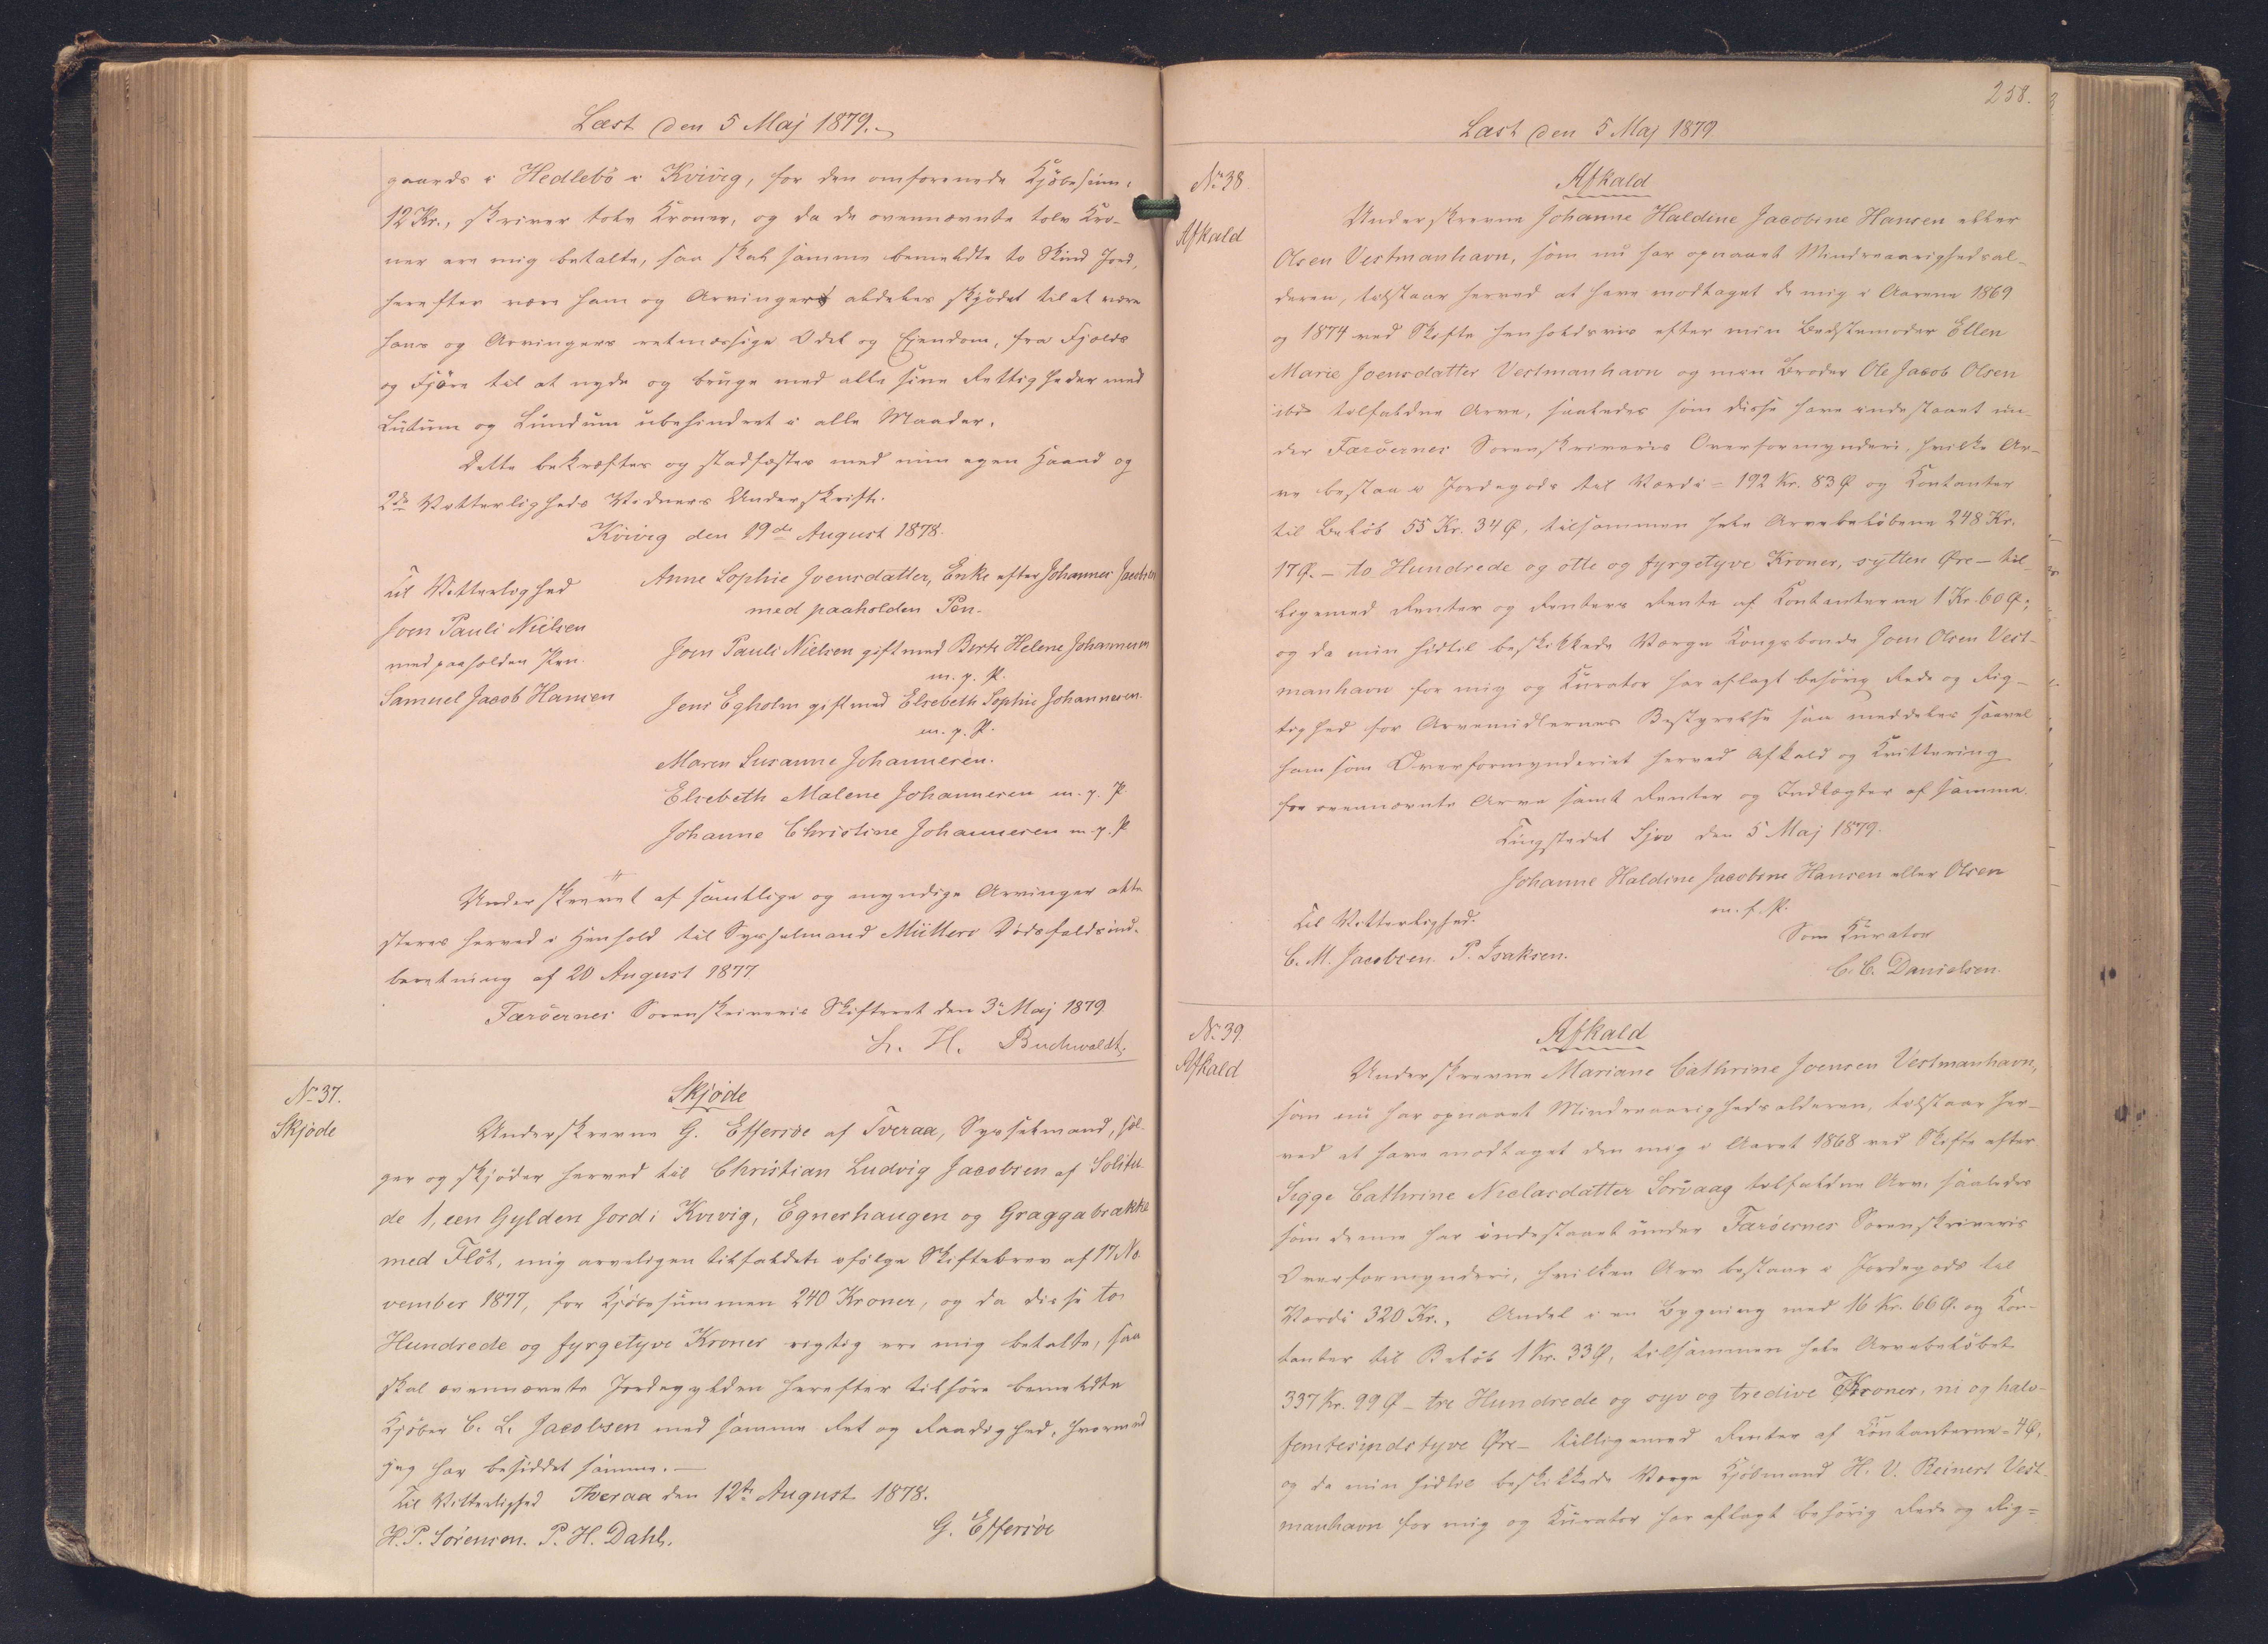 Læst den 5 Maj 1879.
gaards i Hedlebö i Kvivig, for den omforenede Kjöbesum,
12 Kr., skriver tolv Kroner, og da de ovennævnte tolv Kro-
ner ere mig betalte, saa skal samme bemeldte to Skind Jord,
herefter være ham og Arvinger aldeles skjödet til at være
hans og Arvingers retmæssige Odel og Ejendom, fra Fjelds
og Fjöre til at nyde og bruge med alle sine Rettigheder med
Lutum og Lundum ubehindret i alle Maader.
Dette bekræftes og stadfæstes med min egen Haand og
2de Vetterligheds Vidners Underskrift.
Kvivig den 19de August 1878.
Til Vitterlighed
Joen Pauli Nielsen
med paaholden Pen.
Samuel Jacob Hansen
Anne Sophie Joensdatter, Enke efter Johannes Jacobsen
med paaholden Pen.
Joen Pauli Nielsen gift med Birte Helene Johannesen
m. p. P.
Jens Egholm gift med Elsebeth Sophie Johannesen.
m. p. P.
Maren Susanne Johannesen.
Elsebeth Malene Johannesen m. p. P
Johanne Christine Johannesen m. p. P
Underskrevet af samtlige og myndige Arvinger atte-
steres herved i Henhold til Sysselmand Müllers Dödsfaldsind-
beretning af 20 August 1877.
Færöernes Sorenskriveris Skifteret den 3 Maj 1879.
L. H. Buchwaldt.
No 37.
Skjöde
Skjöde
Underskrevne G. Effersöe af Tveraa, Sysselmand, sæl-
ger og skjöder herved til Christian Ludvig Jacobsen af Solitu-
de 1, een Gylden Jord i Kvivig, Egnerhaugen og Graggabrække
med Flöt, mig arveligen tilfaldet ifölge Skiftebrev af 17 No-
vember 1877, for Kjöbesummen 240 Kroner, og da disse to
Hundrede og fyrgetyve Kroner rigtig ere mig betalte, saa
skal ovennævnte Jordegylden herefter tilhöre bemeldte
Kjöber C. L. Jacobsen med samme Ret og Raadighed, hvormed
jeg har besiddet samme.
Til Vitterlighed Thveraa den 12te August 1878.
H. P. Sörensen. P. H. Dahl.
G. Effersöe
258.
Læst den 5 Maj 1879
No 38.
Afkald
Afkald
Underskrevne Johanne Haldine Jacobine Hansen eller
Olsen Vestmanhavn, som nu har opnaaet Mindreaarighedsal-
deren, tilstaar herved at have modtaget de mig i Aarene 1869
og 1874 ved Skifte henholdsvis efter min Bedstemoder Ellen
Marie Joensdatter Vestmanhavn og min Broder Ole Jacob Olsen
ibd tilfaldne Arve, saaledes som disse have indestaaet un-
der Færöernes Sorenskriveris Overformynderi, hvilke Ar-
ve bestaa i Jordegods til Værdi = 192 Kr. 83 Ø og Kontanter
til Belöb 55 Kr. 34 Ø, tilsammen hele Arvebelöbene 248 Kr.
17 Ø. – to Hundrede og otte og fyrgetyve Kroner, sytten Øre – til-
ligemed Renter og Renters Rente af Kontanterne 1 Kr. 60 Ø;
og da min hidtil beskikkede Værge Kongsbonde Joen Olsen Vest-
manhavn for mig og Kurator har aflagt behörig Rede og Rig-
tighed for Arvemidlernes Bestyrelse saa meddeles saavel
ham som Overformynderiet herved Afkald og Kvittering
for ovennævnte Arve samt Renter og Indtægter af samme.
Tingstedet Sjov den 5 Maj 1879.
Johanne Haldine Jacobine Hansen eller Olsen
m. f. P.
Til Vitterlighed.
C. M. Jacobsen. P. Isaksen.
Som Kurator
C. C. Danielsen.
No 39.
Afkald
Afkald
Underskrevne Mariane Cathrine Joensen Vestmanhavn,
som nu har opnaaet Mindreaarighedsalderen, tilstaar her-
ved at have modtaget den mig i Aaret 1868 ved Skifte efter
Sigge Cathrine Niclasdatter Sörvaag tilfaldne Arv, saaledes
som denne har indestaaet under Færöernes Sorenskriveris
Overformynderi, hvilken Arv bestaar i Jordegods til
Værdi 320 Kr., Andel i en Bygning med 16 Kr. 66 Ø. og Kon-
tanter til Belöb 1 Kr. 33 Ø, tilsammen hele Arvebelöbet
337 Kr. 99 Ø – tre Hundrede og syv og tredive Kroner, ni og halv-
femtesindstyve Øre – tilligemed Renter af Kontanterne = 4 Ø,
og da min hidtil beskikkede Værge Kjöbmand H. V. Reinert Vest-
manhavn for mig og Kurator har aflagt behörig Rede og Rig=